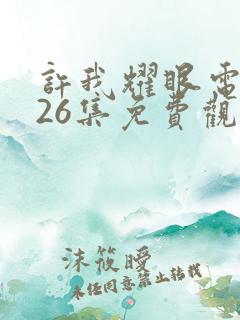 許我耀眼電
26集免費觀
沫筱曖
未经同意禁止转载